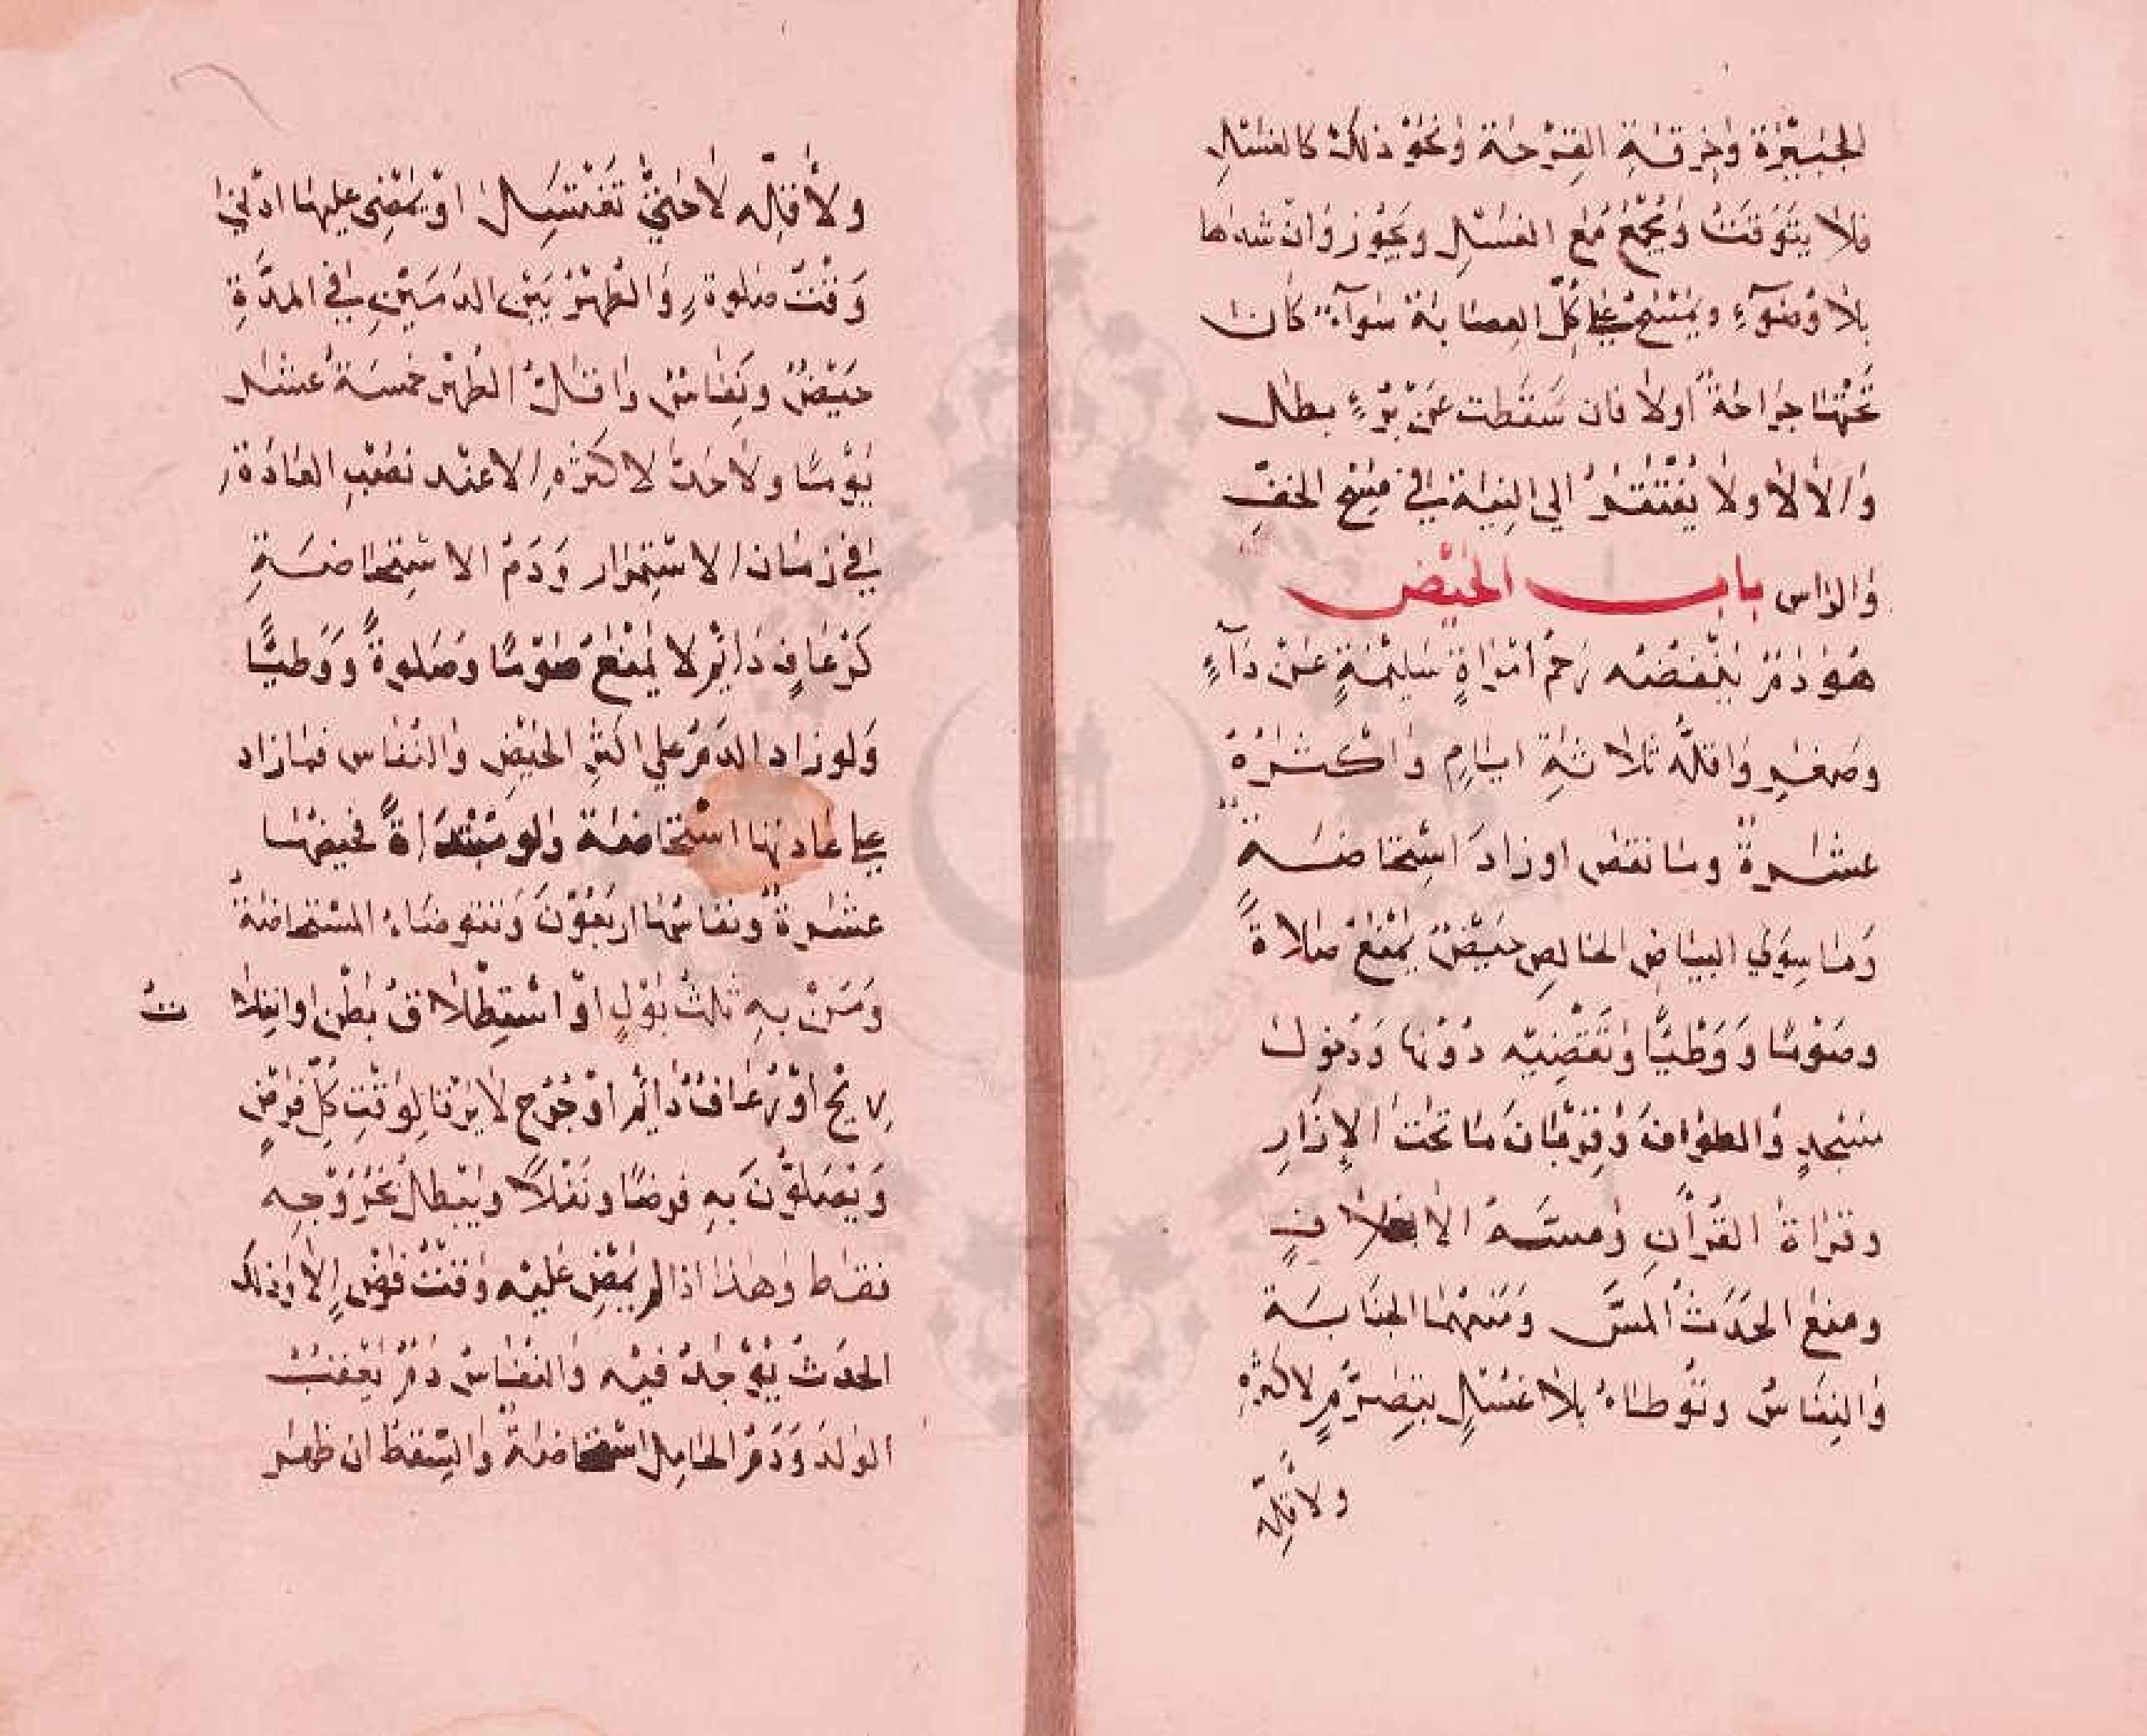 الجَبِيْرَة وَخِرقَةِ القرْحَة وَنَحْو ذلك كالغَسْلِ
فلا يتَوَقتُ وَيُجْمَعُ مَع الغسْلِ ويجُوز وَان شدها
بلا وُضوءٍ وَيمْسَحُ على كُلِّ العصَابَة سَوآءٌ كان
تحْتَها جِرَاحَةٌ أولا فان سَقَطت عَنْ بُرْءٍ بطل
وَالا لا ولا يَفْتَقِرُ الي النِيَة في مَسْحِ الخفِّ
وَالرَاس باب الحَيْض
هُوَ دَمٌ يَنْفضُه رَحمُ امْرَاةٍ سَلِيْمَةٍ عَنْ دَآءٍ
وصغرٍ وَاقلّه ثلاثة ايام وَاكْثرُهُ
عشرة وما نقص او زادَ اسْتِحَاضَةٌ
وَمَا سِوَي البيَاض الخالِصِ حَيْضٌ يمْنَعُ صَلاةً
وصَوْمًا وَوَطْيًا وَتَقْضِيْه دُوْنها وَدُخول
مَسْجِدٍ وَالطوَافَ وَقِرْبَانَ مَا تحْتَ الإزَارِ
وقرَاةَ القُرْأن وَمسَّهُ الا بغلافٍ
ومنع الحَدَثُ المسَّ وَمَنَعَهُما الجنَابَة
وَالنِفَاسُ وتُوطاءُ بلا غسْلٍ بتصَرُّمٍ لاكثرِهِ
ولأقلِّه
ولأقلِّه لا حَتَّي تَغْتَسِلَ اوْ يمْضِي عليها ادْني
وَقْتُ صَلوةٍ وَالطُهْرُ بَيْنَ الدمَيْنِ في المدَّةِ
حَيْضٌ وَنِفاسٌ وَاقلُّ الطُهْر خمسَة عشر
يَوْمًا ولا حَدّ لاكثَرِه الا عنْد نصْبِ العَادَة
في زمَان الاسْتِمْرَار وَدَمُ الاسْتِحَاضَةِ
كَرُعَافٍ دَائِمٍ لا يمْنَعُ صَوْمًا وَصَلوةً وَوَطيًا
وَلو زاد الدَمُ علي اكثر الحَيْض وَالنفاس فما زاد
على عَادتها اسْتحَاضة ولو مُبْتَدَاةً فحيضها
عشرة ونفاسُها اربَعُوْنَ وَتتوضاء المستحاضة
وَمَنْ بهِ سلسُ بَوْلٍ اوْ اسْتِطْلاقُ بَطْن او انفلا ت
رِيْحٍ اوْ رُعَافٌ دَائِم اوْ جُرْح لا يَرْقا لِوَقْتِ كُلِّ فرْضٍ
وَيُصَلوْنَ بَهِ فرضًا ونَفْلاً ويَبْطل بخرُوْجِه
فقط وهذا اذا لم يمْضِ عَليْه وَقْتُ فرْضٍ الا وذلك
الحَدَثُ يُوْجَدُ فيْه وَالنفاسُ دَمٌ يَعْقبُ
الوَلدَ وَدَمُ الحَامِل اسْتحَاضةٌ وَالسِّقطُ ان ظهر